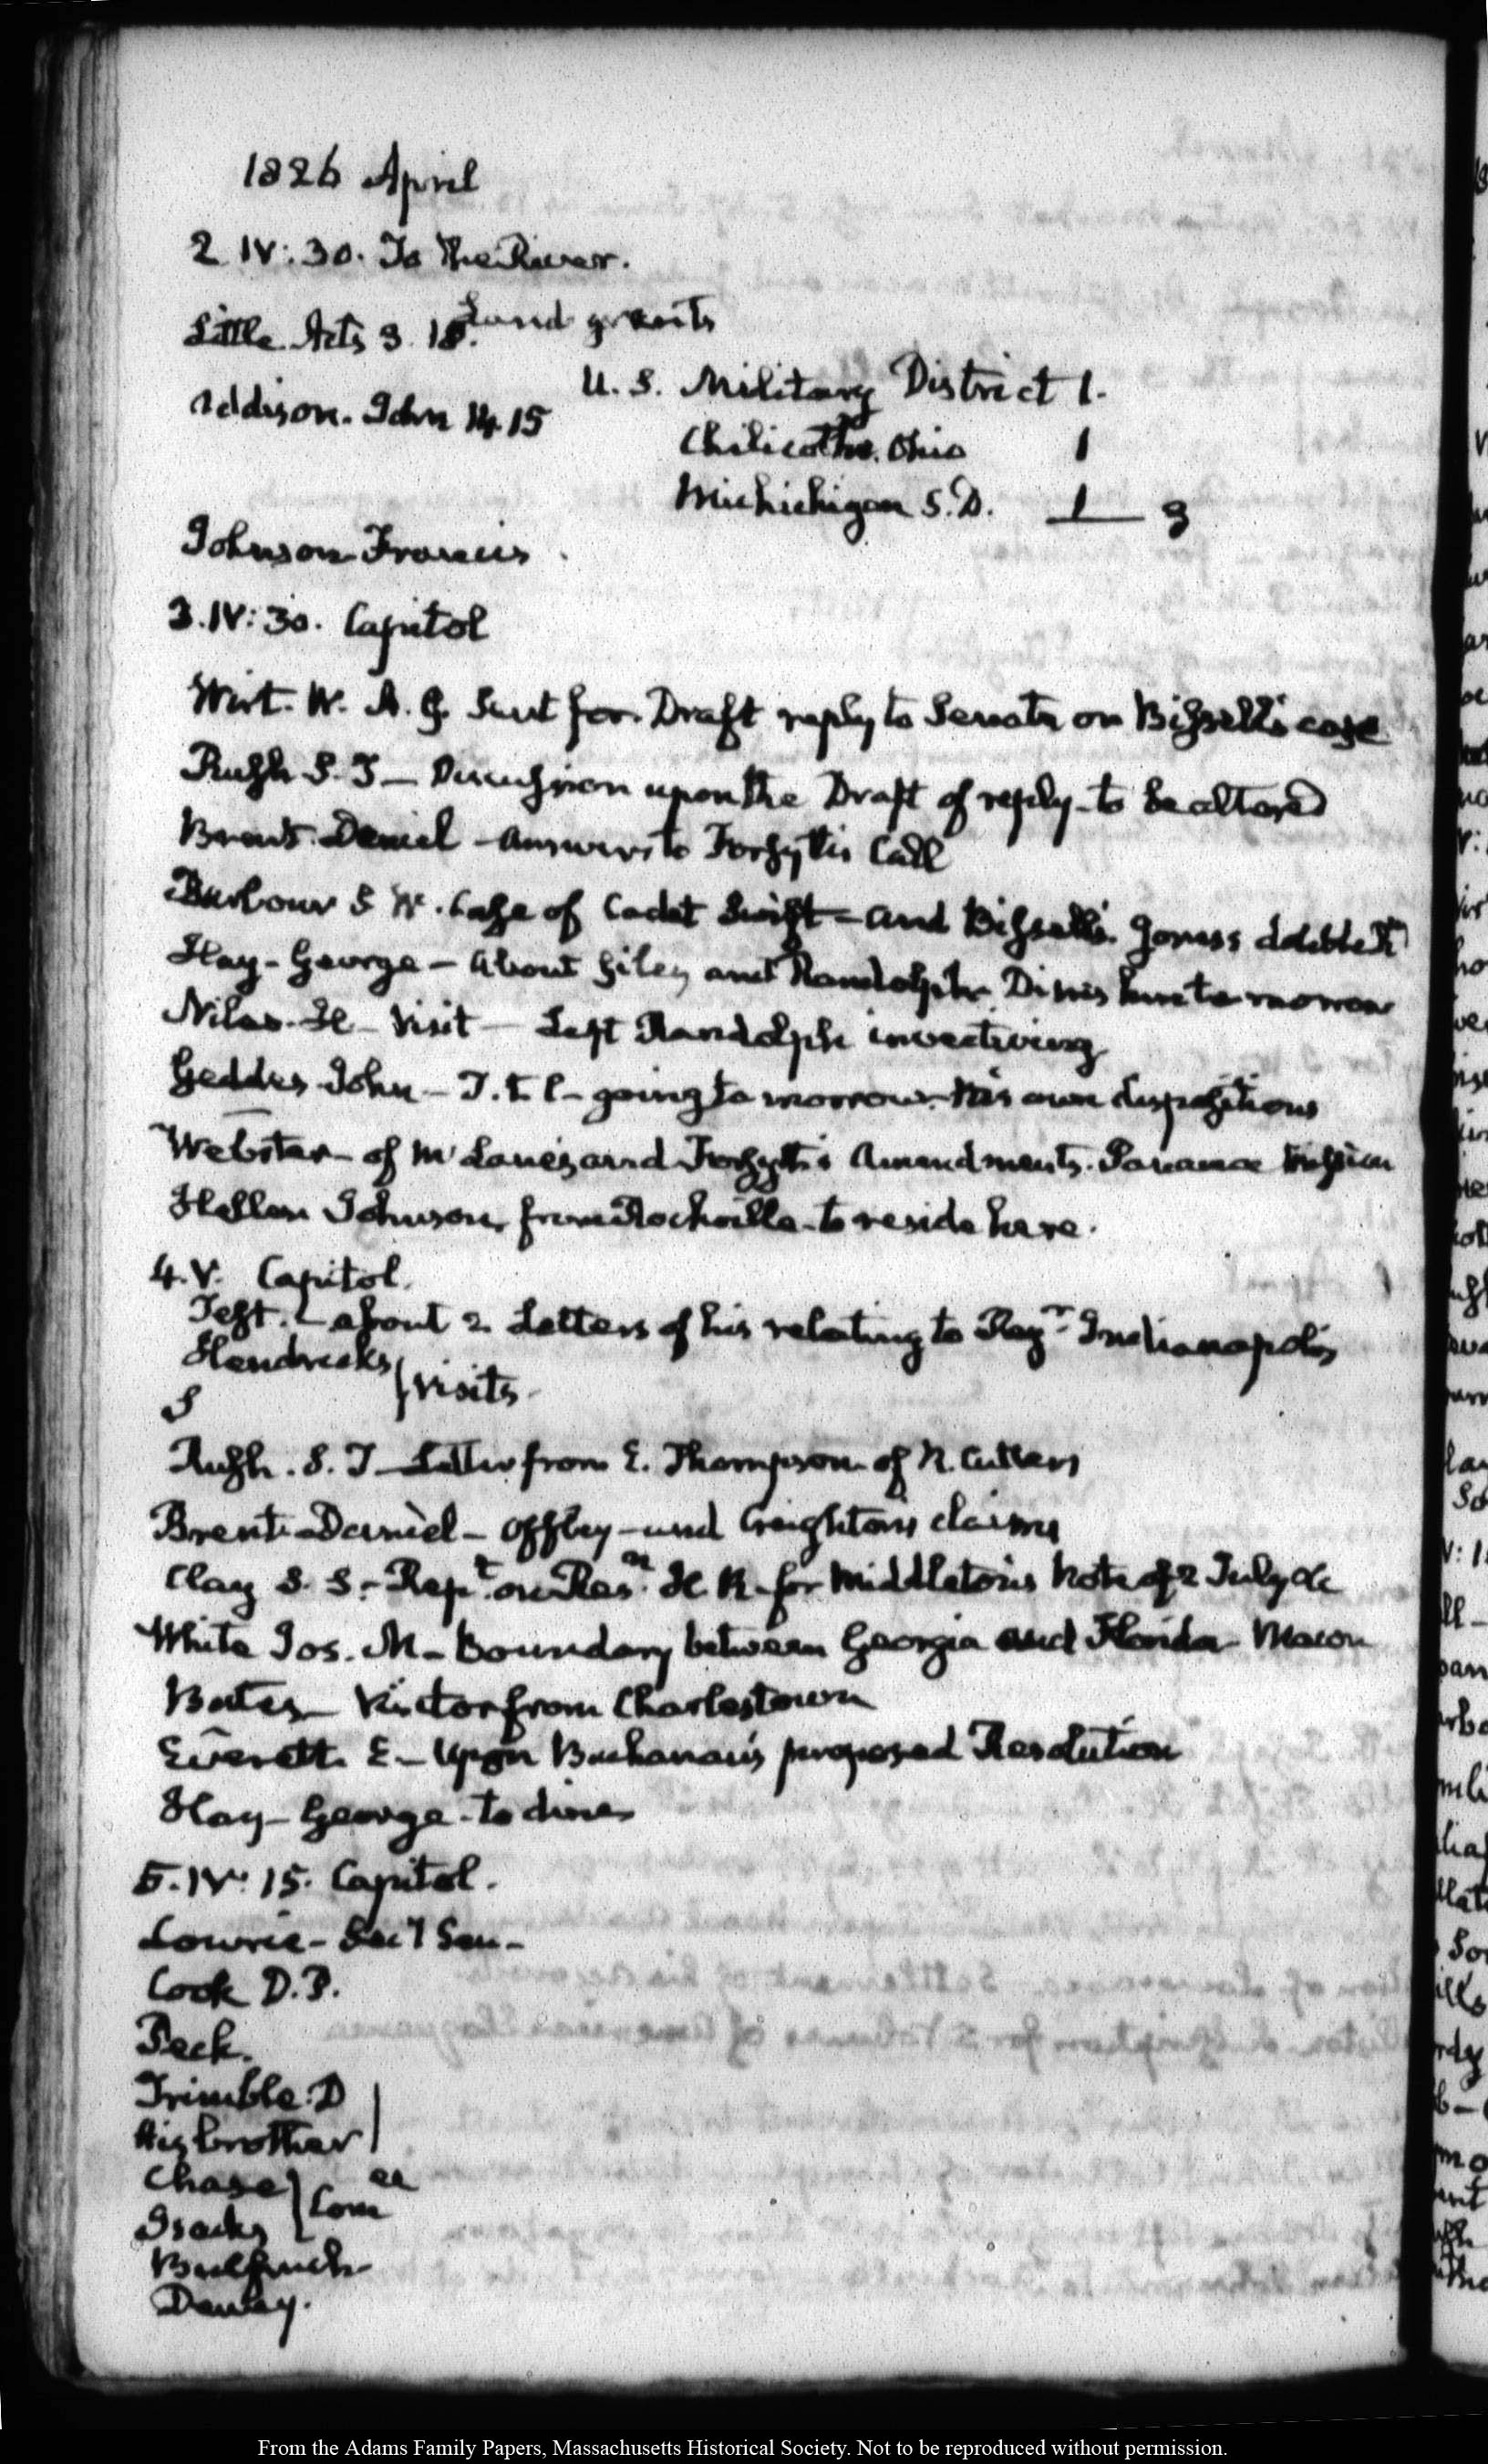 1826 April
2 IV: 30. To the River.
Little Acts 3. 18. Land grants
U. S. Military District 1.
Addison. John 14. 15
Chilicothe. Ohio 1
Michichigan S. D. 1 3
Johnson Francis
3. IV: 30. Capitol
Wirt. W. A. G. Sent for. Draft reply to Senate on Bissell's case
Rush S. T — Discussion upon the Draft of reply to be altered
Brent. Daniel — Answers to Forsyth's Call
Barbour S W. Case of Cadet Swift — and Bissell's. Jones's
Hay — George — About Giles and Randolph. Dines here to morrow
Niles. H — Visit — Left Randolph invectiving
Geddes John — T. t. l — going to morrow. His own dispositions
Webster — of McLane's and Forsyth's Amendments. Panama Mission
Hellen Johnson, from Rockville — to reside here.
4. V. Capitol.
Test. — about 2 Letters of his relating to Indianapolis
Hendricks
S
visits
Rush. S. T — Letter from E. Thompson of N. Cutters
Brent. Daniel — Offley — and Creighton's claims
Clay S. S. — Rept. on Resn. H. R. for Middleton's Note of 2 July &c
White Jos. M — Boundary between Georgia and Florida — Macon
Bates — Visitor from Charlestown
Everett. E — Upon Buchanan's proposed Resolution
Hay — George — to dine
5. IV: 15. Capitol.
Lowrie — Secy Sen —
Cook D. P.
Peck.
Trimble. D
His brother
Chase
Isacks
Comee
Bulfinch
Dewey.
From the Adams Family Papers, Massachusetts Historical Society. Not to be reproduced without permission.